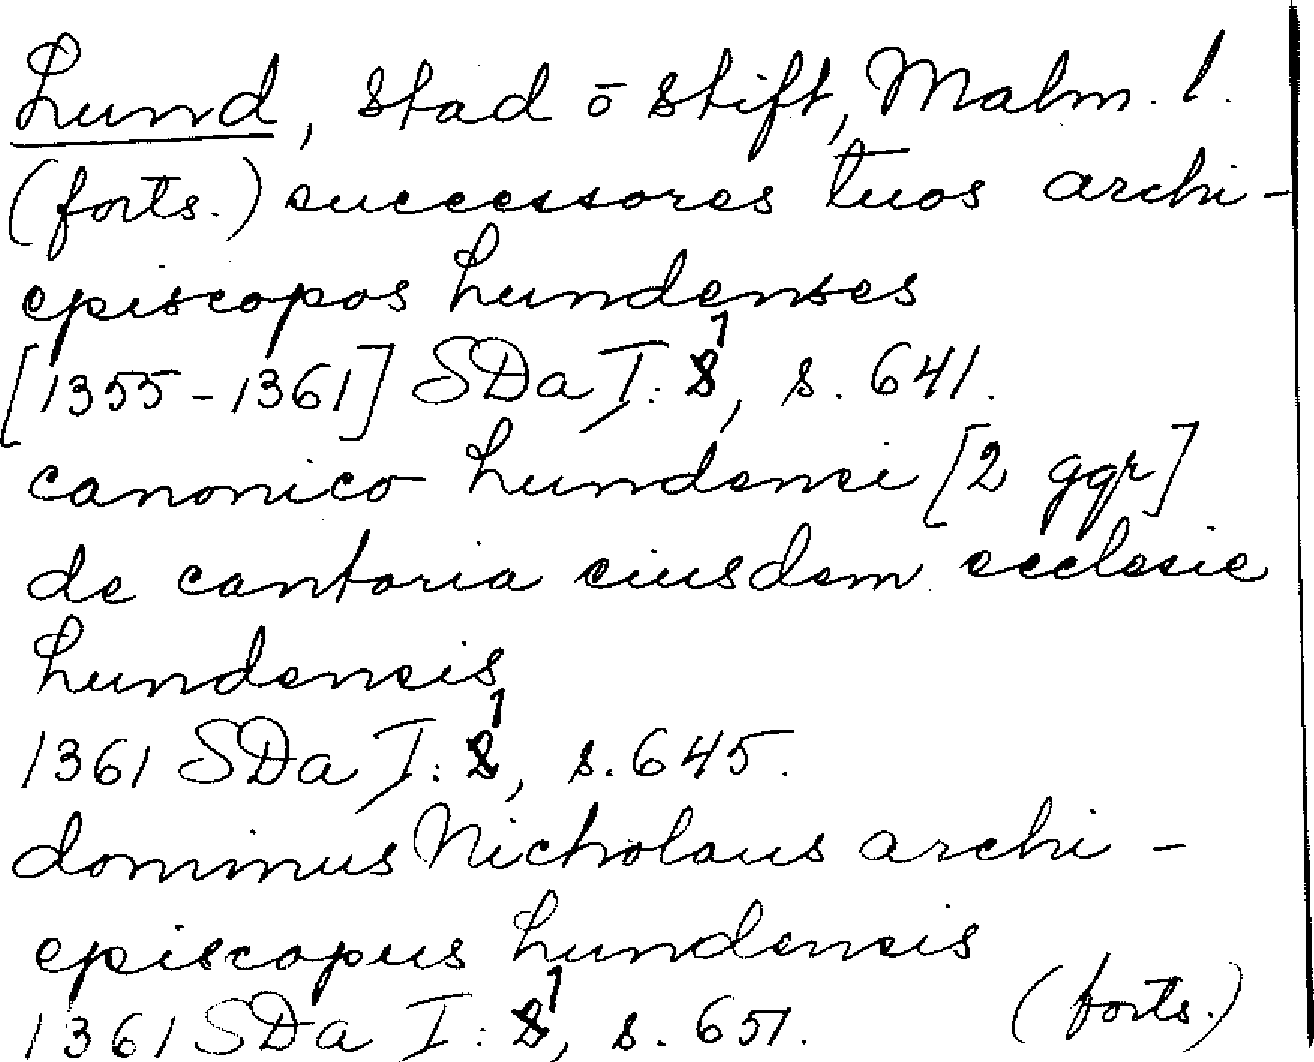 Lund, stad ō stift, Malm. l.
(forts.) successores tuos archi-
episcopos Lundenses
[1355-1361] SDa I: 1, s. 641.
canonico Lundensi [2 ggr]
de cantoria eiusdem ecclesie
Lundensis
1361 SDa I: 1, s. 645.
dominus Nicholaus archi-
episcopus Lundensis
1361 SDa I: 1, s. 651. (forts.)